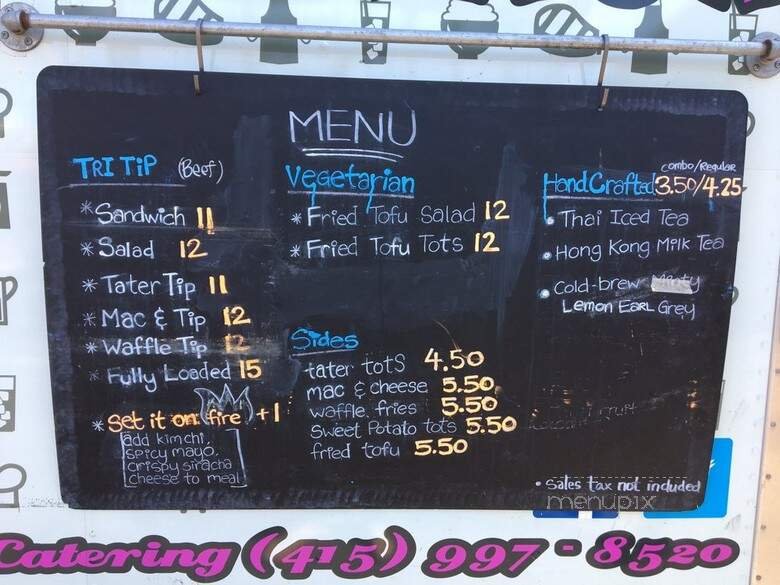 MENU
TRI TIP (Beef)
* Sandwich 11
* Salad 12
* Tater Tip 11
* Mac & Tip 12
* Waffle Tip 12
* Fully Loaded 15
* Set it on fire +1
add kimchi,
spicy mayo,
crispy siracha
cheese to meal
Vegetarian
* Fried Tofu Salad 12
* Fried Tofu Tots 12
Sides
tater totS 4.50
mac & cheese 5.50
waffle fries 5.50
Sweet Potato tots 5.50
fried tofu 5.50
combo/Regular
HandCrafted 3.50/4.25
• Thai Iced Tea
• Hong Kong Milk Tea
• Cold-brew Minty
Lemon Earl Grey
• Sales tax not included
menupix
Catering (415) 997-8520